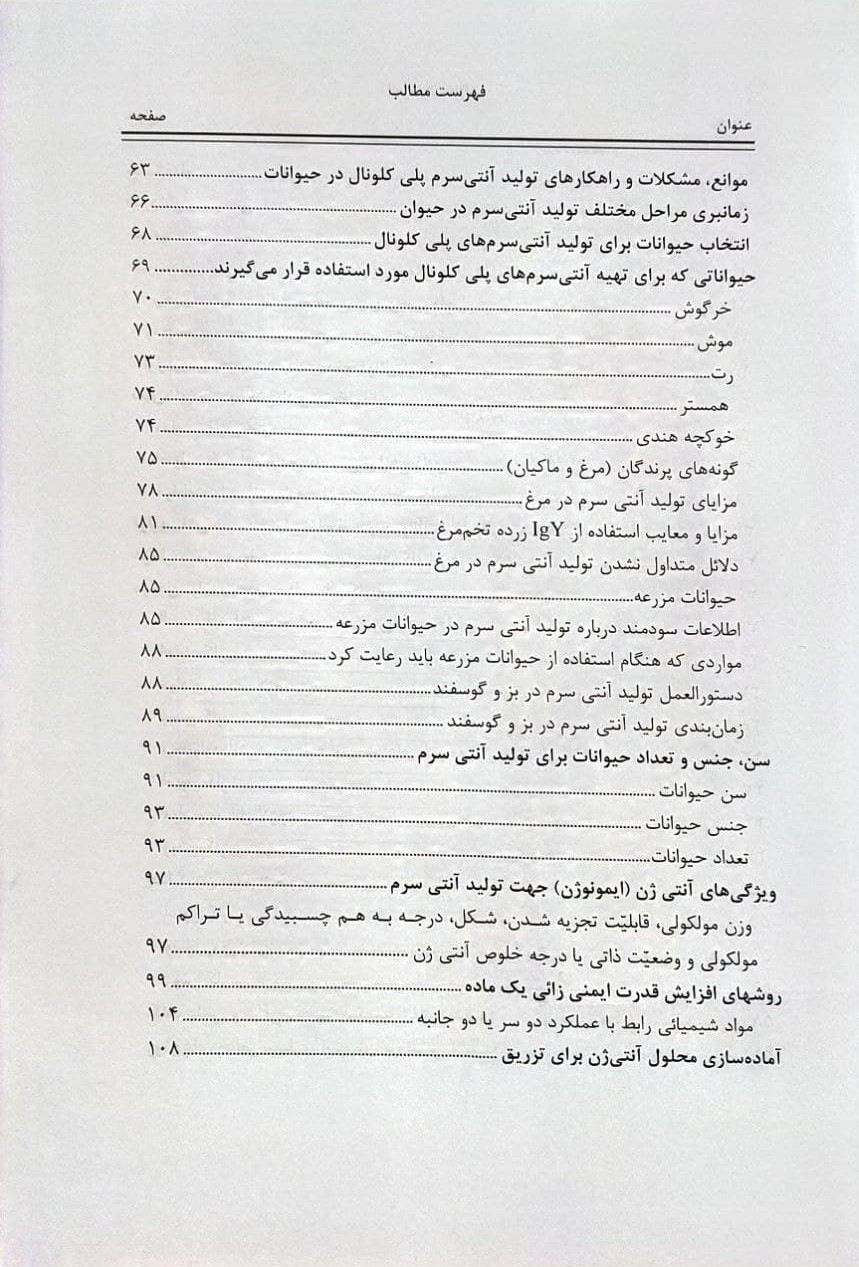 فهرست مطالب
عنوان صفحه
موانع، مشکلات و راهکارهای تولید آنتی‌سرم پلی کلونال در حیوانات ............................ ۶۳
زمانبری مراحل مختلف تولید آنتی‌سرم در حیوان ............................ ۶۶
انتخاب حیوانات برای تولید آنتی‌سرم‌های پلی کلونال ............................ ۶۸
حیواناتی که برای تهیه آنتی‌سرم‌های پلی کلونال مورد استفاده قرار می‌گیرند ............. ۶۹
خرگوش ............................ ۷۰
موش ............................ ۷۱
رت ............................ ۷۳
همستر ............................ ۷۴
خوکچه هندی ............................ ۷۴
گونه‌های پرندگان (مرغ و ماکیان) ............................ ۷۵
مزایای تولید آنتی سرم در مرغ ............................ ۷۸
مزایا و معایب استفاده از IgY زرده تخم‌مرغ ............................ ۸۱
دلائل متداول نشدن تولید آنتی سرم در مرغ ............................ ۸۵
حیوانات مزرعه ............................ ۸۵
اطلاعات سودمند درباره تولید آنتی سرم در حیوانات مزرعه ............................ ۸۵
مواردی که هنگام استفاده از حیوانات مزرعه باید رعایت کرد ............................ ۸۸
دستورالعمل تولید آنتی سرم در بز و گوسفند ............................ ۸۸
زمان‌بندی تولید آنتی سرم در بز و گوسفند ............................ ۸۹
سن، جنس و تعداد حیوانات برای تولید آنتی سرم ............................ ۹۱
سن حیوانات ............................ ۹۱
جنس حیوانات ............................ ۹۳
تعداد حیوانات ............................ ۹۳
ویژگی‌های آنتی ژن (ایمونوژن) جهت تولید آنتی سرم ............................ ۹۷
وزن مولکولی، قابلیّت تجزیه شدن، شکل، درجه به هم چسبیدگی یا تراکم
مولکولی و وضعیّت ذاتی یا درجه خلوص آنتی ژن ............................ ۹۷
روشهای افزایش قدرت ایمنی زائی یک ماده ............................ ۹۹
مواد شیمیائی رابط با عملکرد دو سر یا دو جانبه ............................ ۱۰۴
آماده‌سازی محلول آنتی‌ژن برای تزریق ............................ ۱۰۸